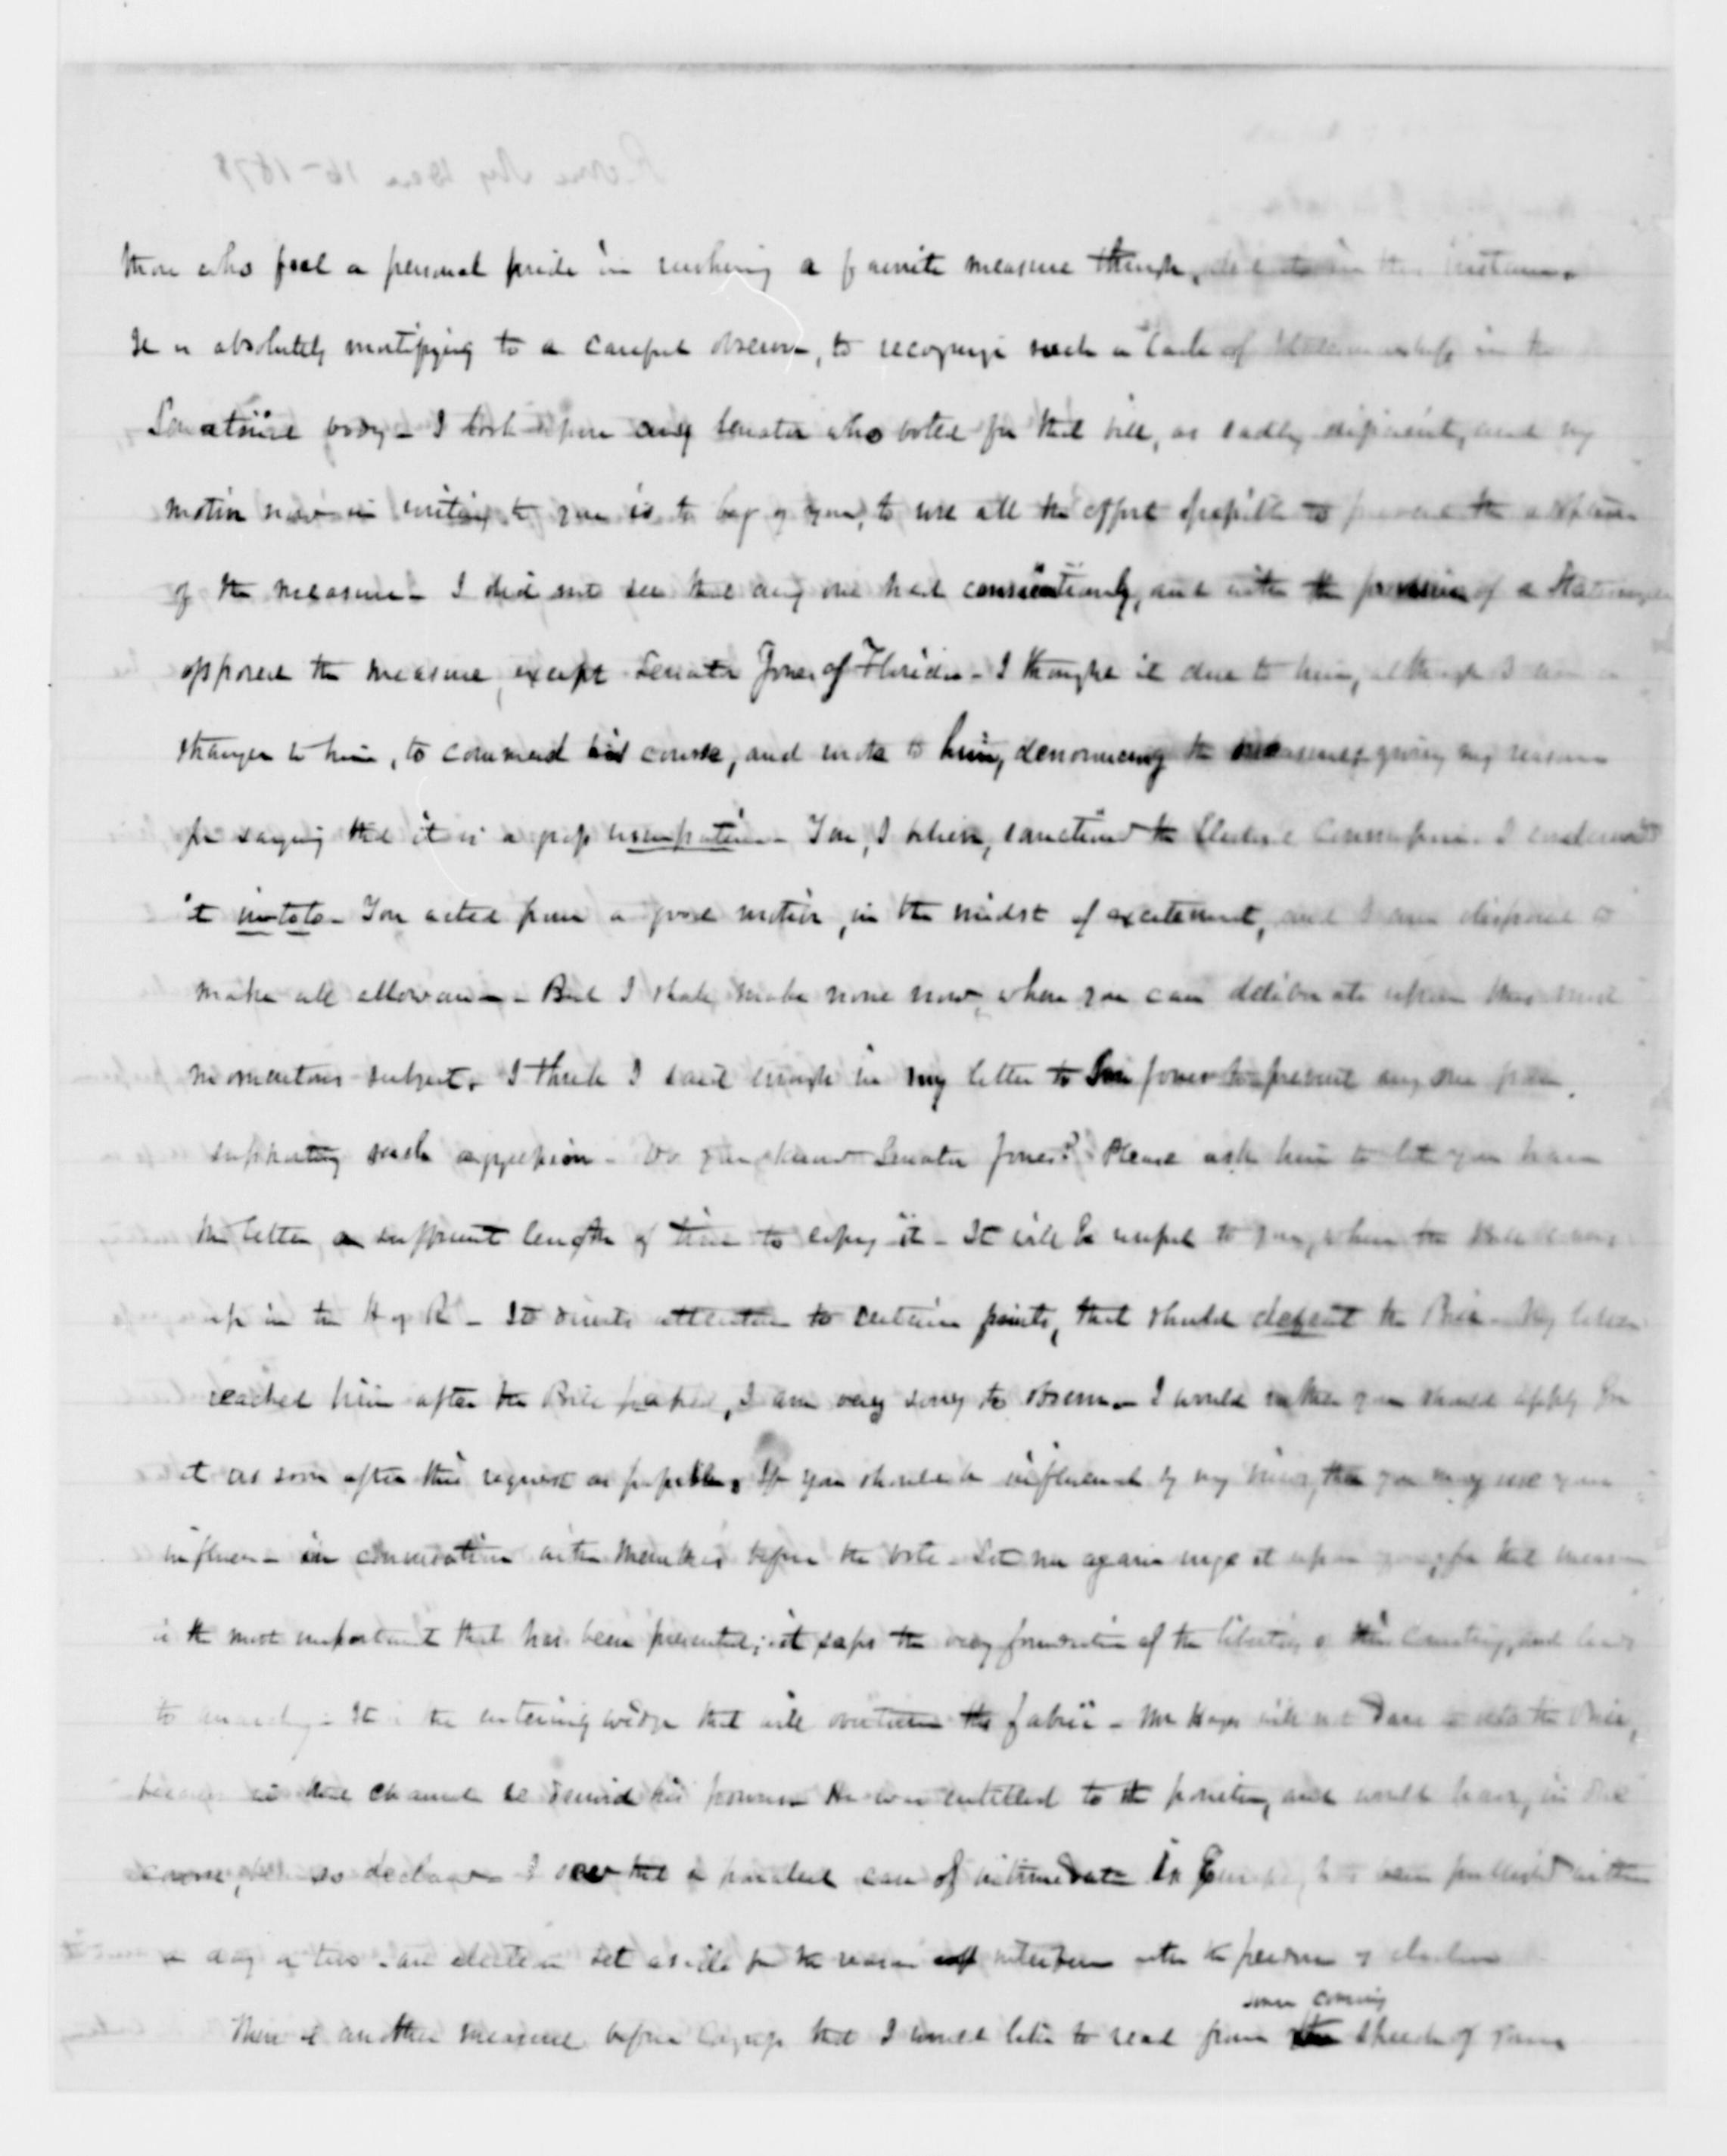 those who feel a personal pride in rushing a favorite measure through, in this instance.
It is absolutely mortifying to a careful observer, to recognize such a lack of statesmanship in the
Senatorial body - I look upon any Senator who voted for that bill, as sadly deficient, and my
motive now in writing to you is to beg of you, to use all the effort possible to prevent the adoption
of the measure - I did not see that any one had conscientiously, and with the of a Statesman
opposed the measure, except Senator Jones of Florida - I thought it due to him, although I am a
stranger to him, to commend his course, and wrote to him, denouncing the measure & giving my reasons
for saying that it is a usurpation - You, I believe, sanctioned the Electoral Commission. I
it in toto - You acted from a good motive, in the midst of excitement, and I am disposed to
make all allowance - But I shall make none now, when you can deliberate upon this most
momentous subject. I think I said enough in my letter to Jones to prevent any one from
supporting such aggression - Do you know Senator Jones? Please ask him to let you have
the letter a sufficient length of time to copy it - It will be useful to you, when the comes
up in the H of R - It directs attention to certain points, that should defeat the Bill - My letter
reached him after the Bill passed, I am very sorry to observe - I would rather you should apply for
it as soon after this request as possible. If you should be influenced by my views, then you may use your
influence in conversation with members before the vote - Let me again urge it upon you, for that measure
is the most important that has been presented; it saps the very foundation of the liberties of this Country, and leads
to anarchy - It is the entering wedge that will overturn the fabric - Mr Hayes will not dare to veto the Bill,
because in that channel he derived his power He was entitled to the position, and would have, in due
course, been so declared I saw that a parallel case of in has been published within
a day or two - an election set aside for the reason of interference with the freedom of election
There is another measure before Congress that I would like to read from some coming speech of yours